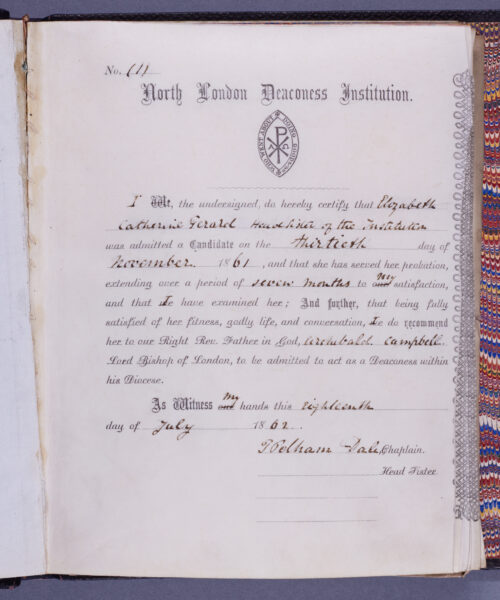 No. (1)
North London Deaconess Institution.
WHO WENT ABOUT DOING GOOD
I We, the undersigned, do hereby certify that Elizabeth
Catherine Ferard Head Sister of the Institution
was admitted a Candidate on the thirtieth day of
November 1861, and that she has served her probation,
extending over a period of seven months to our my satisfaction,
and that I We have examined her; And further, that being fully
satisfied of her fitness, godly life, and conversation, I We do recommend
her to our Right Rev. Father in God, Archibald Campbell
Lord Bishop of London, to be admitted to act as a Deaconess within
his Diocese.
As Witness our my hands this eighteenth
day of July 1862.
T Pelham Dale, Chaplain.
Head Sister